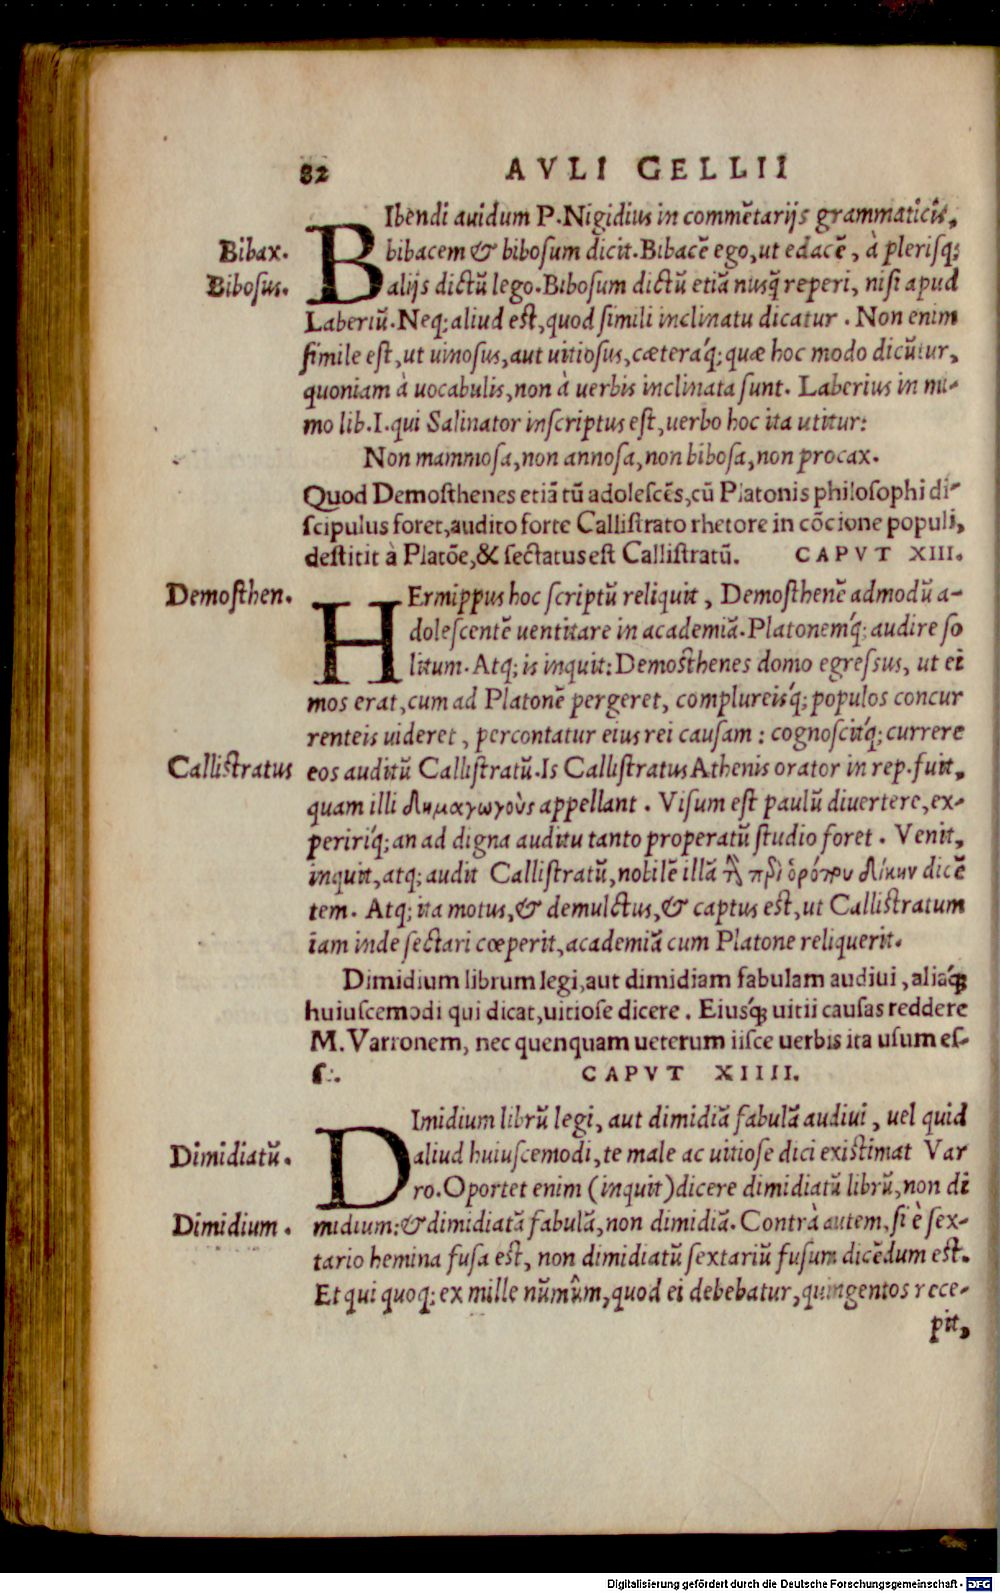 82 AVLI GELLII
BIbendi auidum P. Nigidius in commētarijs grammaticis,
Bibax. bibacem & bibosum dicit. Bibacē ego, ut edacē, à plerisq;
Bibosus. alijs dictū lego. Bibosum dictū etiā nusq̃ reperi, nisi apud
Laberiū. Neq; aliud est, quod simili inclinatu dicatur. Non enim
simile est, ut uinosus, aut uitiosus, cæteráq; quæ hoc modo dicūtur,
quoniam à uocabulis, non à uerbis inclinata sunt. Laberius in mi-
mo lib. I. qui Salinator inscriptus est, uerbo hoc ita utitur:
Non mammosa, non annosa, non bibosa, non procax.
Quod Demosthenes etiā tū adolescēs, cū Platonis philosophi di-
scipulus foret, audito forte Callistrato rhetore in cōcione populi,
destitit à Platōe, & sectatus est Callistratū. CAPVT XIII.
Demosthen. HErmippus hoc scriptū reliquit, Demosthenē admodū a-
dolescentē uentitare in academiā. Platonemq́; audire so
litum. Atq; is inquit: Demosthenes domo egressus, ut ei
mos erat, cum ad Platonē pergeret, complureisq́; populos concur
renteis uideret, percontatur eius rei causam: cognoscitq́; currere
Callistratus eos auditū Callistratū. Is Callistratus Athenis orator in rep. fuit,
quam illi δημαγωγοὺς appellant. Visum est paulū diuertere, ex-
peririq́; an ad digna auditu tanto properatū studio foret. Venit,
inquit, atq; audit Callistratū, nobilē illā τὴν περὶ ὀρόπου δίκην dicē
tem. Atq; ita motus, & demulctus, & captus est, ut Callistratum
iam inde sectari cœperit, academiā cum Platone reliquerit.
Dimidium librum legi, aut dimidiam fabulam audiui, aliáq;
huiuscemodi qui dicat, uitiose dicere. Eiusq́; uitii causas reddere
M. Varronem, nec quenquam ueterum iisce uerbis ita usum es-
se. CAPVT XIIII.
DImidium librū legi, aut dimidiā fabulā audiui, uel quid
Dimidiatū. aliud huiuscemodi, te male ac uitiose dici existimat Var
ro. Oportet enim (inquit) dicere dimidiatū librū, non di
Dimidium. midium: & dimidiatā fabulā, non dimidiā. Contrà autem, si è sex-
tario hemina fusa est, non dimidiatū sextariū fusum dicēdum est.
Et qui quoq; ex mille nūmûm, quod ei debebatur, quingentos rece-
pit,
Digitalisierung gefördert durch die Deutsche Forschungsgemeinschaft - DFG